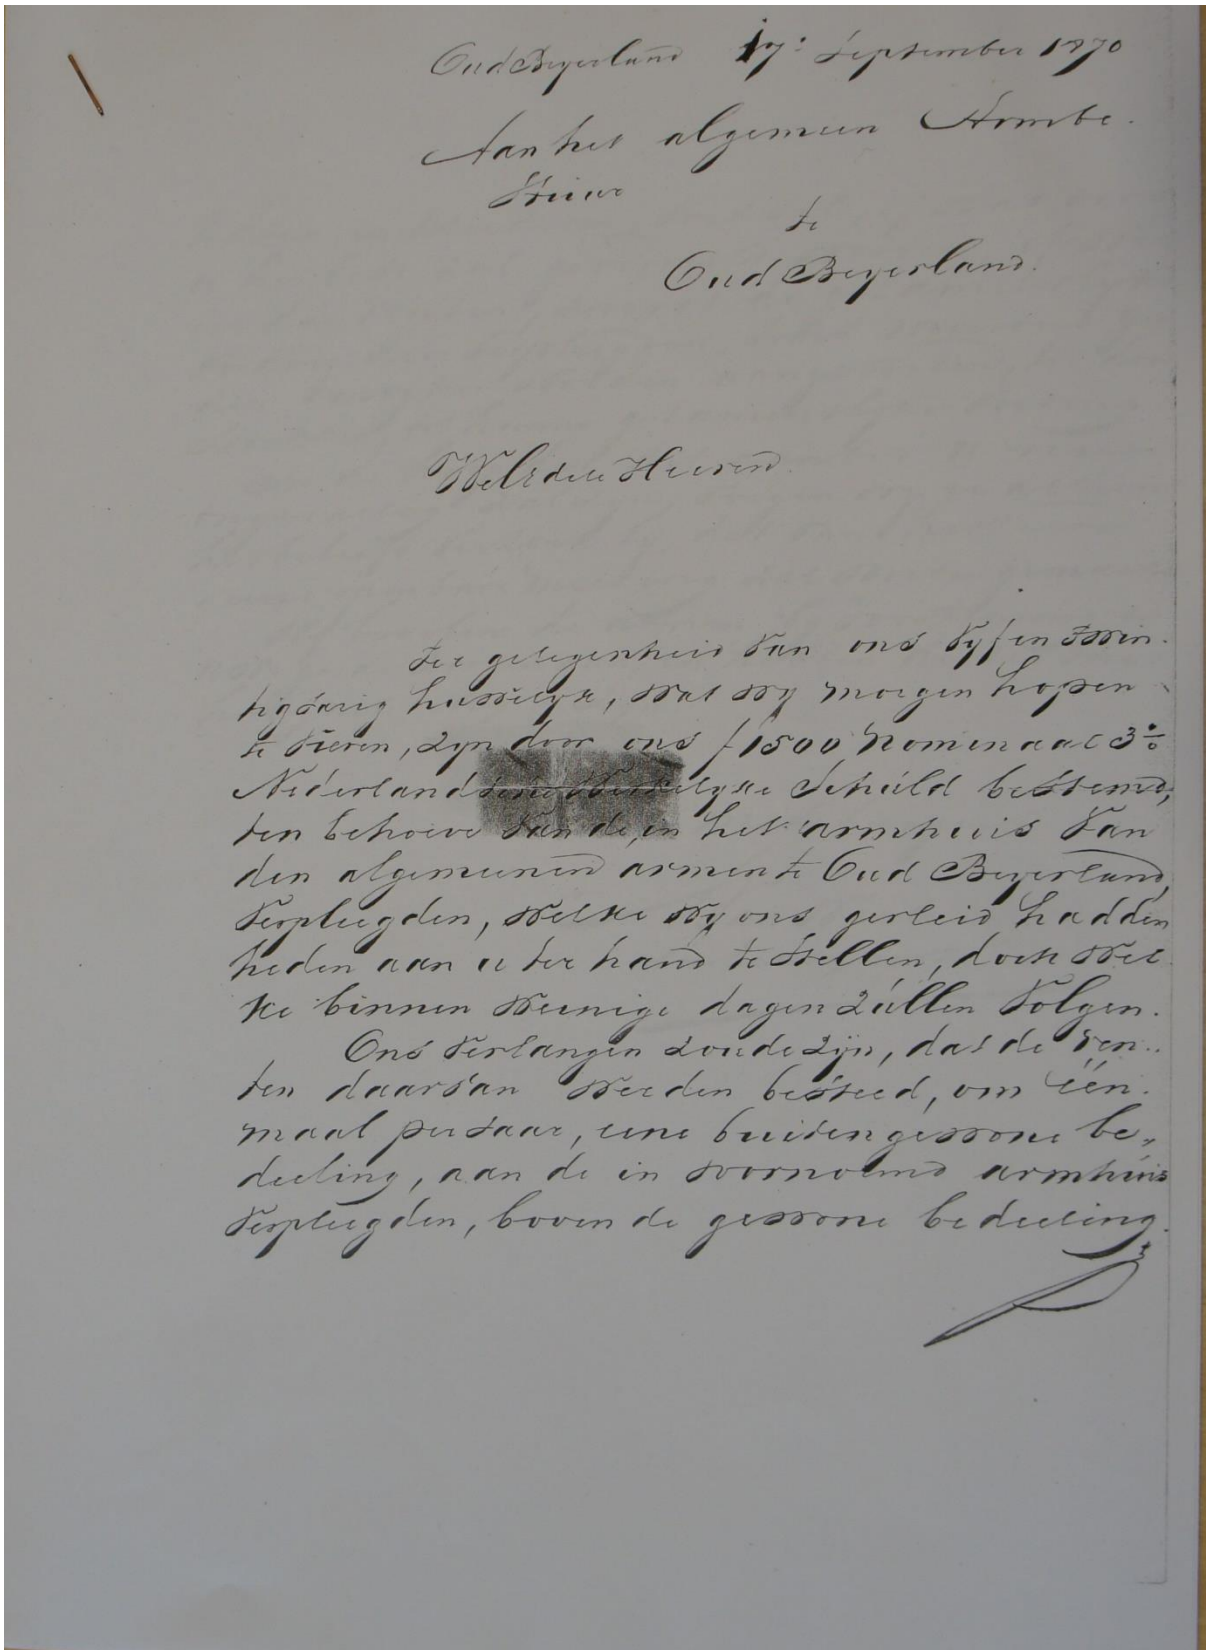 Oud Beyerland 17: September 1870
Aan het algemeen Armbe-
stuur
te
Oud Beyerland.
WelEdele Heeren
Ter gelegenheid van ons vyf en twin-
tigjarig huwelyk, wat wy morgen hopen
te vieren, zyn door ons f 1500 nominaal 3%
Nederlandsche Werkelyke Schuld bestemd,
ten behoeve van de, in het armhuis van
den algemeenen armen te Oud Beyerland,
verpleegden, welke wy ons gevleid hadden
heden aan u ter hand te stellen, doch wel
ke binnen weinige dagen zullen volgen.
Ons verlangen zoude zijn, dat de ren-
ten daarvan werden besteed, om één-
maal per jaar, eene buitengewone be-
deeling, aan de in voornoemd armhuis
verpleegden, boven de gewone bedeeling.